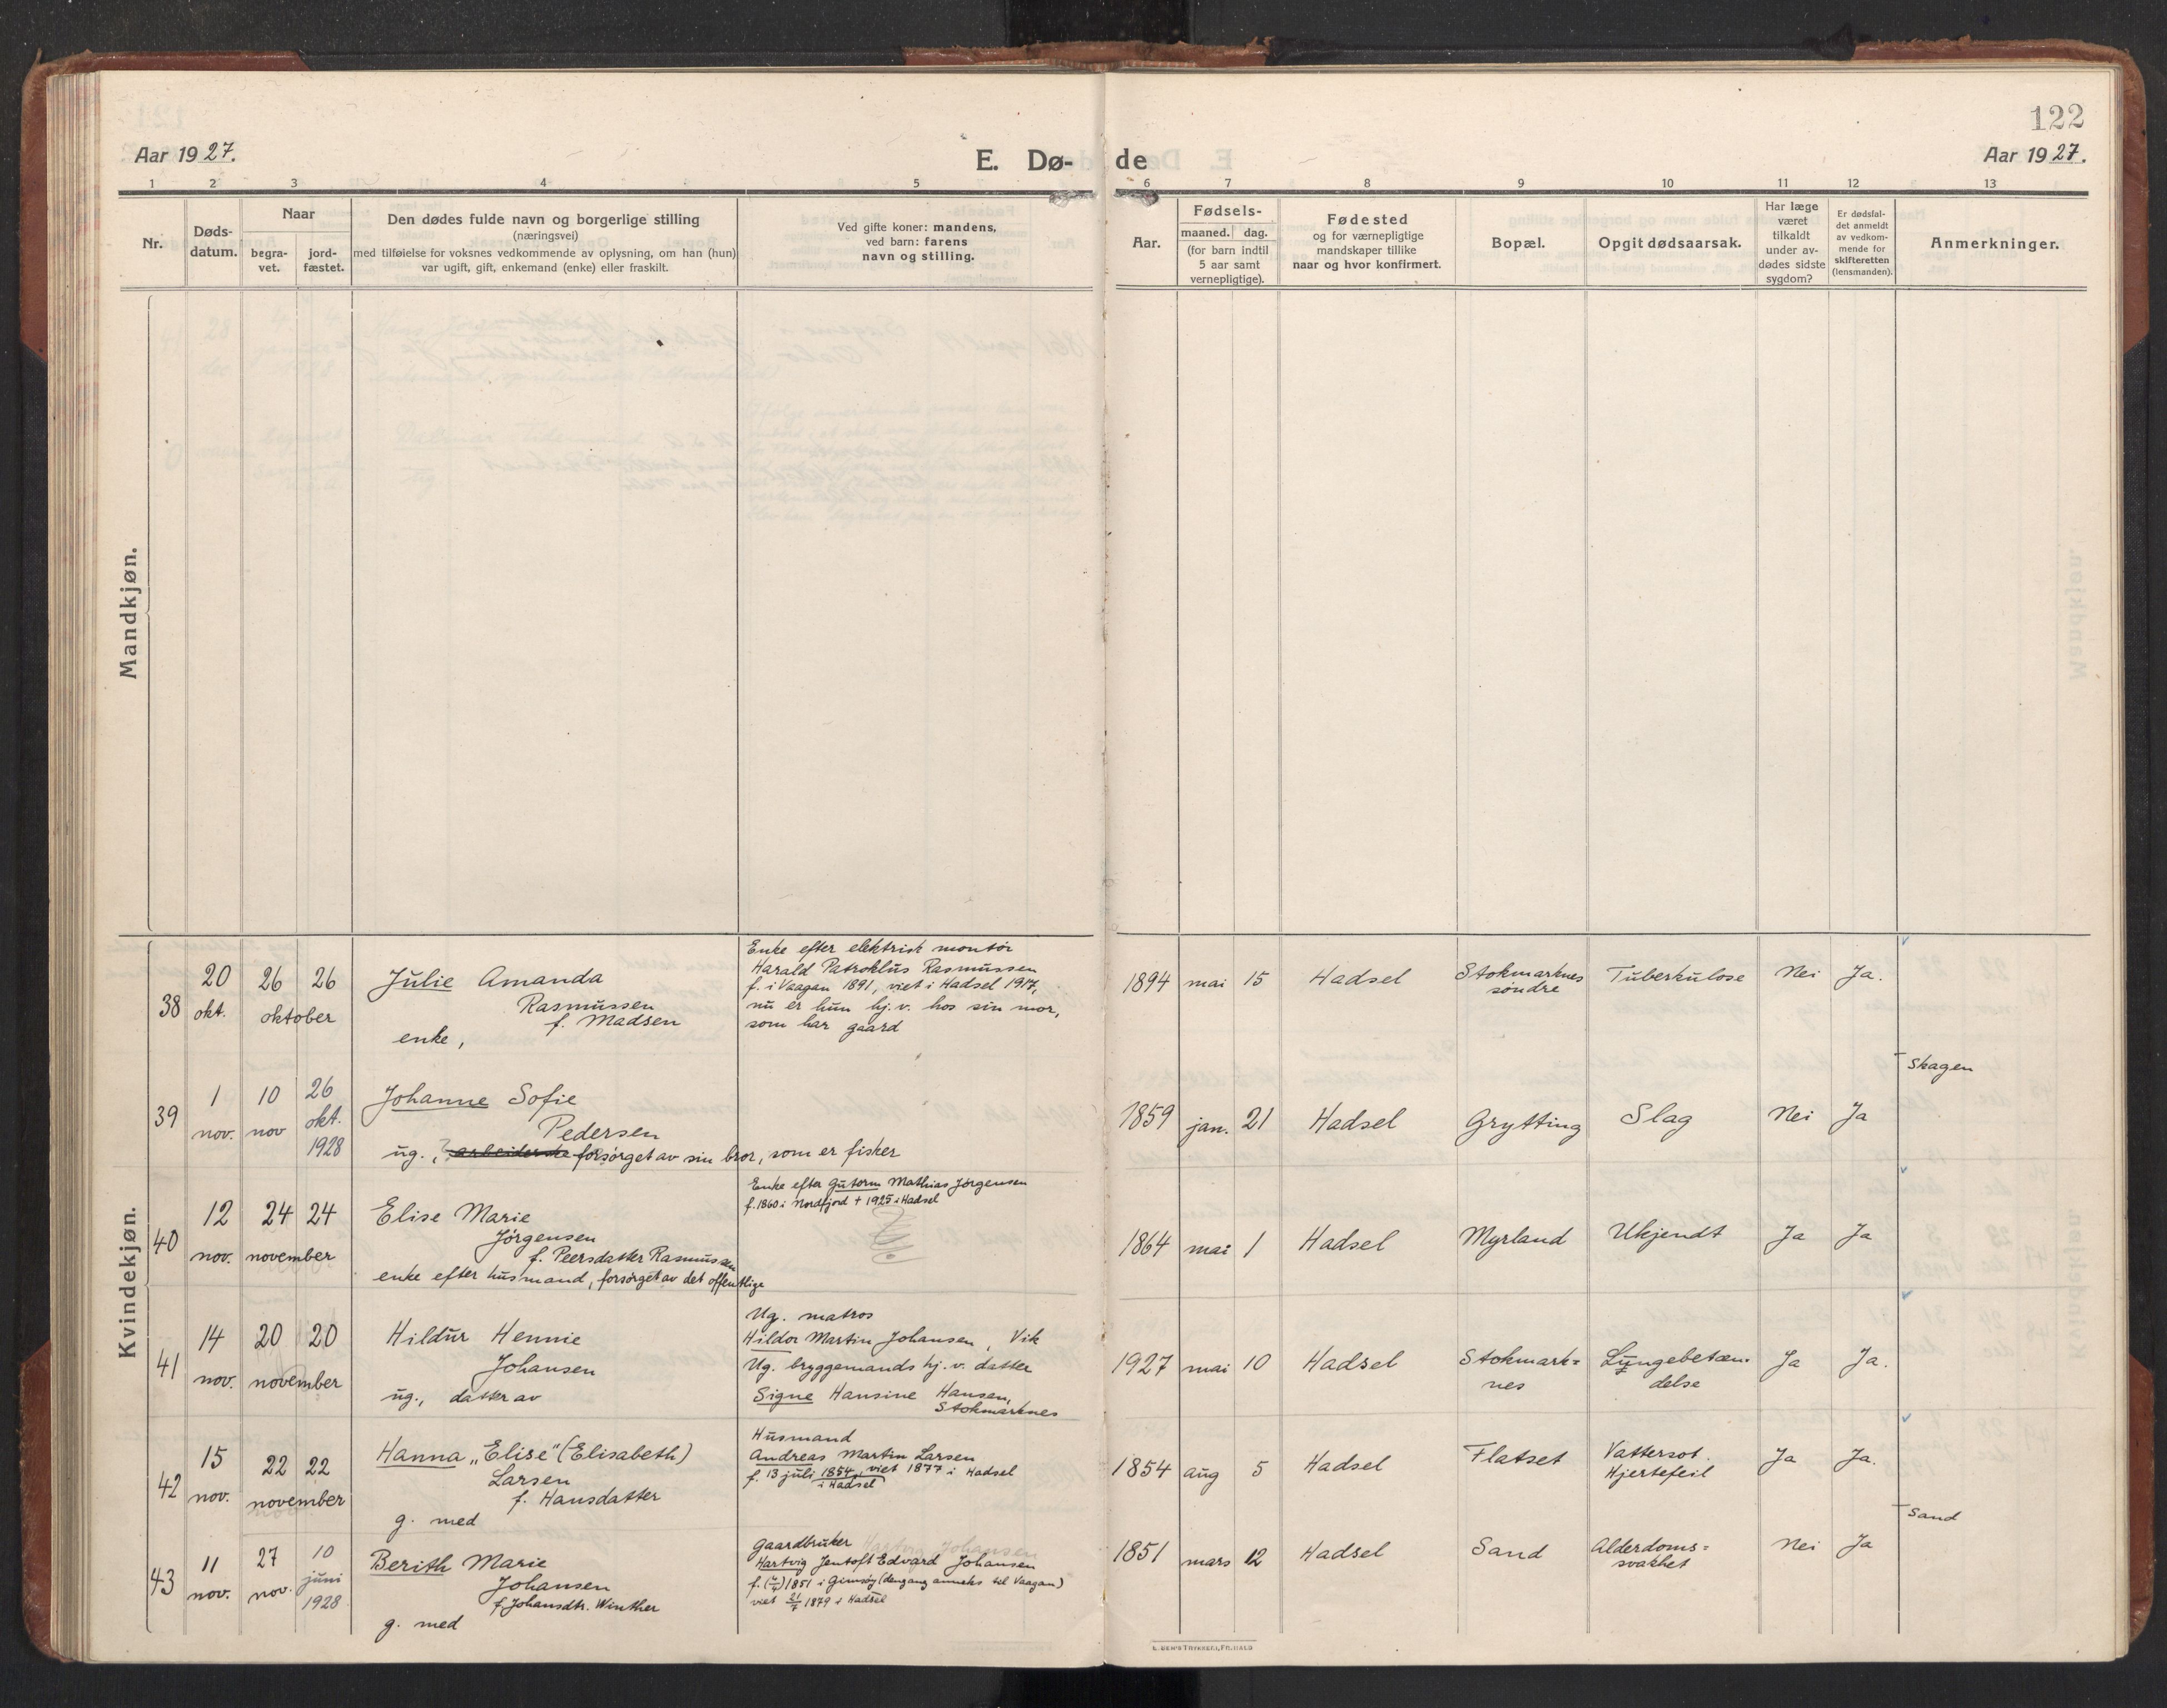 122
Aar 1927.
E. Dø-
de
Aar 1927.
1 2 3 4 5 6 7 8 9 10 11 12 13
Nr.
Døds-
datum.
Naar
begra-
vet.
jord-
fæstet.
Den dødes fulde navn og borgerlige stilling
(næringsvei)
med tilføielse for voksnes vedkommende av oplysning, om han (hun)
var ugift, gift, enkemand (enke) eller fraskilt.
Ved gifte koner: mandens,
ved barn: farens
navn og stilling.
Aar.
Fødsels-
maaned. dag.
(for barn indtil
5 aar samt
vernepligtige).
Fødested
og for værnepligtige
mandskaper tillike
naar og hvor konfirmert.
Bopæl.
Opgit dødsaarsak.
Har læge
været
tilkaldt
under av-
dødes sidste
sygdom?
Er dødsfal-
det anmeldt
av vedkom-
mende for
skifteretten
(lensmanden).
Anmerkninger.
Mandkjøn.
Kvindekjøn.
38
20
okt.
26 26
oktober
Julie Amanda
Rasmussen
f. Madsen
enke,
Enke efter elektrisk montør
Harald Patroklus Rasmussen
f. i Vaagan 1891, viet i Hadsel 1917,
nu er hun hj.v. hos sin mor,
som har gaard
1894 mai 15 Hadsel
Stokmarknes
søndre
Tuberkulose Nei Ja.
39
1
nov.
10
nov
26
okt.
1928
Johanne Sofie
Pedersen
ug., arbeiderske forsørget av sin bror, som er fisker
1859 jan. 21 Hadsel Grytting Slag Nei Ja
Skagen
40
12
nov.
24 24
november
Elise Marie
Jørgensen
f. Peersdatter Rasmussen
enke efter husmand, forsørget av det offentlige
Enke efter Gutorm Mathias Jørgensen
f. 1860 i Nordfjord + 1925 i Hadsel
1864 mai 1 Hadsel Myrland Ukjendt Ja Ja
41
14
nov.
20 20
november
Hildur Hennie
Johansen
ug., datter av
Ug. matros
Hildor Martin Johansen, Vik
Ug. bryggemands hj.v. datter
Signe Hansine Hansen,
Stokmarknes
1927 mai 10 Hadsel
Stokmark=
nes
Lungebetæn=
delse
Ja Ja.
42
15
nov.
22 22
november
Hanna „Elise" (Elisabeth)
Larsen
f. Hansdatter
g. med
Husmand
Andreas Martin Larsen
f. 13 juli 1854, viet 1877 i Hadsel
i Hadsel
1854 aug 5 Hadsel Flatset
Vattersot.
Hjertefeil
Ja Ja.
43
11
nov.
27
nov.
10
juni
1928
Berith Marie
Johansen
f. Johansdtr. Winther
g. med
Gaardbruker Hartvig Johansen
Hartvig Jentoft Edvard Johansen
f. 1851 i Gimsøy (dengang anneks til Vaagan)
viet 21/7 1879 i Hadsel
1851 mars 12 Hadsel Sand
Alderdoms=
svakhet
Nei Ja
Sand